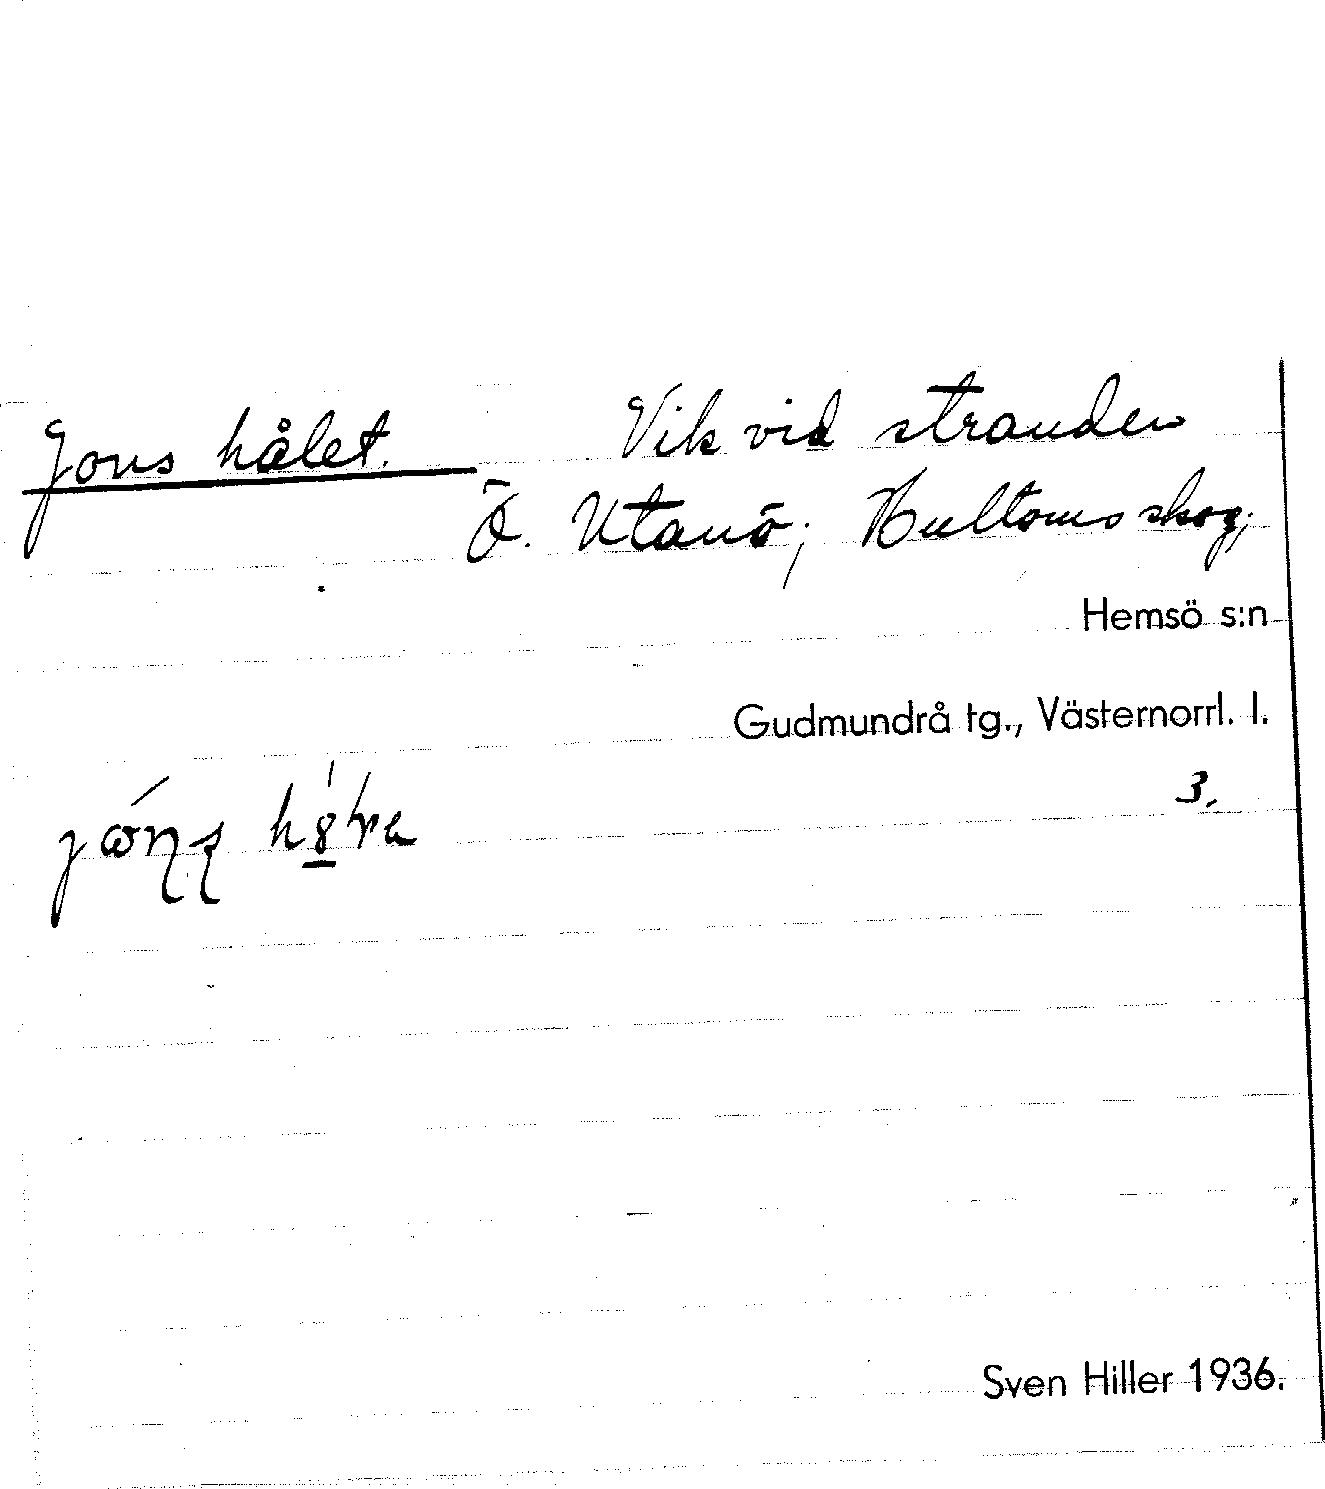 Jons hålet. Vik vid stranden
Ö. Utanö, Hultoms skog,
Hemsö s:n
Gudmundrå tg., Västernorrl. l.
3.
Sven Hiller 1936.